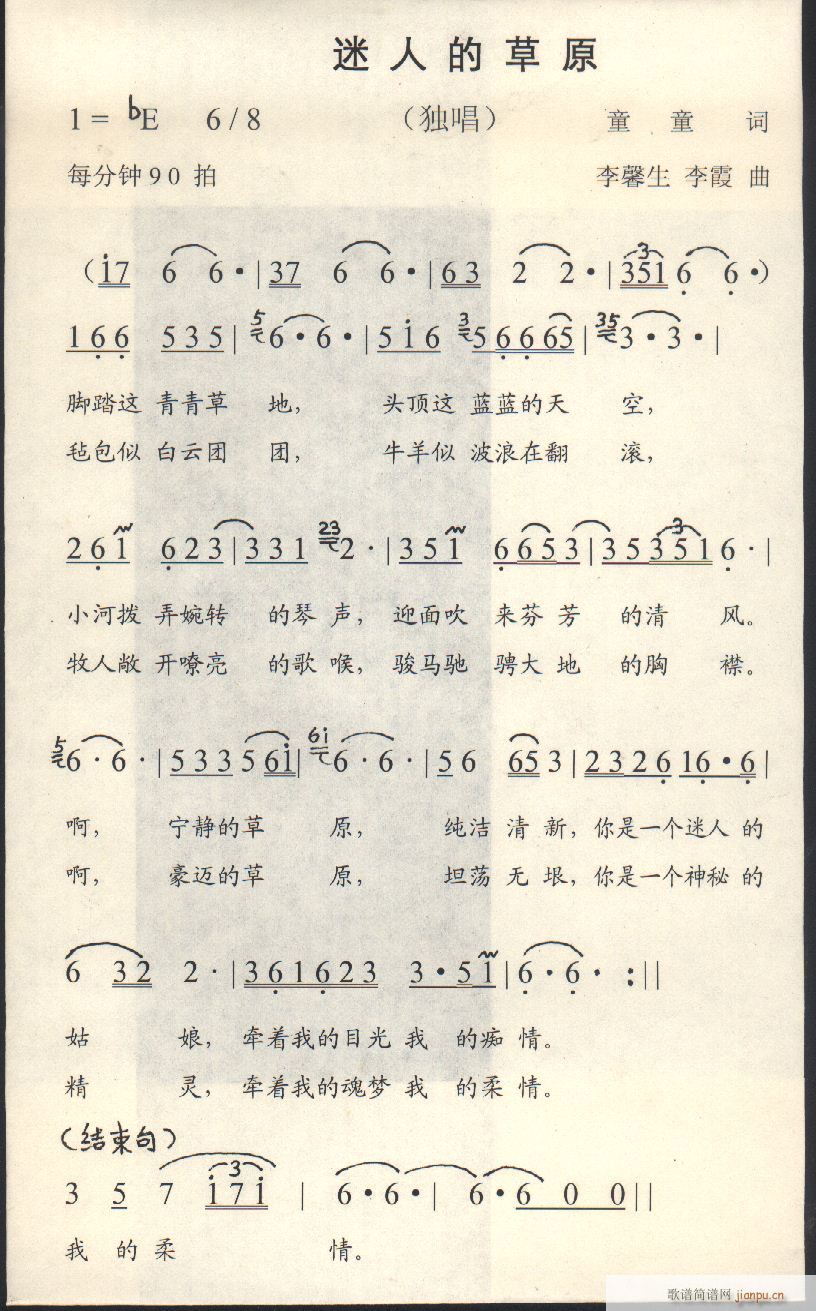 迷人的草原
1=♭E 6/8 （独唱） 童 童 词
每分钟90 拍 李馨生 李霞 曲
（i7 6 6·|37 6 6·|63 2 2·|351 6 6·）
166 535|5 6·6·|5i6 3 56665|35 3·3·|
脚踏这 青青草 地， 头顶这 蓝蓝的天 空，
毡包似 白云团 团， 牛羊似 波浪在翻 滚，
261 623|331 23 2·|351 6653|353516·|
小河拨 弄婉转 的琴 声，迎面吹 来芬 芳 的清 风。
牧人敞 开嘹亮 的歌 喉，骏马驰 骋大 地 的胸 襟。
5 6·6·|533561|6i 6·6·|56 653|2326 16·6|
啊， 宁静的草 原， 纯洁 清 新，你是一个迷人 的
啊， 豪迈的草 原， 坦荡 无 垠，你是一个神秘 的
6 32 2·|361623 3·51|6·6· :||
姑 娘，牵着我的目光 我 的痴 情。
精 灵，牵着我的魂梦 我 的柔 情。
（结束句）
3 5 7 3 i7i | 6·6·| 6·6 0 0||
我 的 柔 情。
歌谱简谱网 jianpu.cn